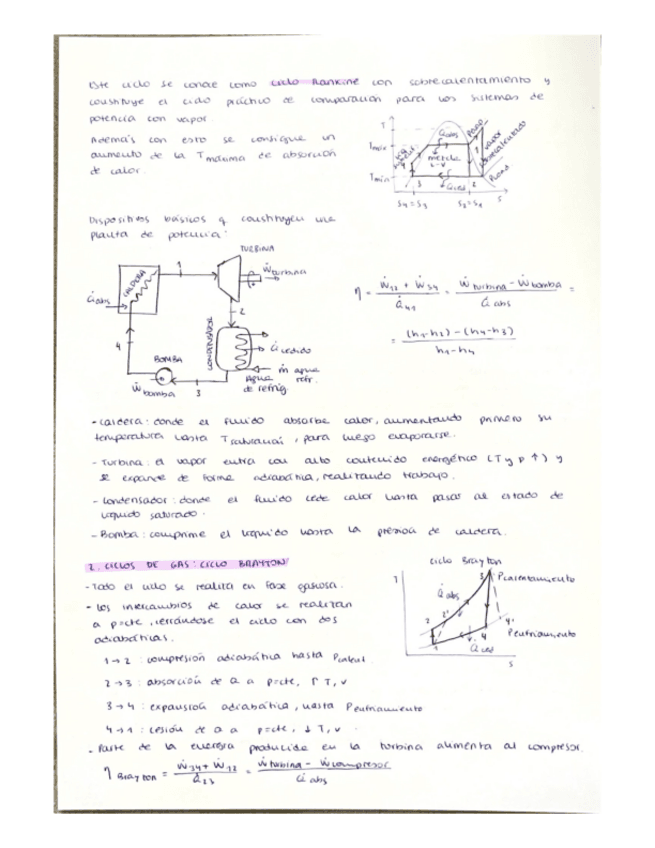 Este ciclo se conoce como ciclo Rankine con sobrecalentamiento y
constituye el ciclo práctico de comparación para los sistemas de
potencia con vapor.
Además con esto se consigue un
aumento de la T máxima de absorción
de calor.
T
Tmáx
Tmin
Q̇abs
mezcla
L-V
Q̇ced
vapor
sobrecalentado
3
2
S4=S3
S2=S1
S
Dispositivos básicos q constituyen una
planta de potencia:
TURBINA
CALDERA
1
Ẇturbina
Q̇abs
2
CONDENSADOR
Q̇cedido
4
BOMBA
ṁ agua
refr.
Agua
de refrig
Ẇbomba
3
η = (Ẇ12 + Ẇ34) / Q̇41 = (Ẇturbina - Ẇbomba) / Q̇abs =
= ((h1-h2) - (h4-h3)) / (h1-h4)
- Caldera: donde el fluido absorbe calor, aumentando primero su
temperatura hasta Tsaturación, para luego evaporarse.
- Turbina: el vapor entra con alto contenido energético (T y p ↑) y
se expande de forma adiabática, realizando trabajo.
- Condensador: donde el fluido cede calor hasta pasar al estado de
líquido saturado.
- Bomba: comprime el líquido hasta la presión de caldera.
2. CICLOS DE GAS: CICLO BRAYTON
- Todo el ciclo se realiza en fase gaseosa.
- Los intercambios de calor se realizan
a p=cte, cerrándose el ciclo con dos
adiabáticas.
1→2: compresión adiabática hasta Pcalent.
2→3: absorción de Q a p=cte, ↑T, v
3→4: expansión adiabática, hasta Penfriamiento
4→1: cesión de Q a p=cte, ↓T, v.
ciclo Brayton
T
3
Pcalentamiento
Q̇abs
2
2'
4
4'
Penfriamiento
1
Q̇ced
S
- Parte de la energía producida en la turbina alimenta al compresor.
η Brayton = (Ẇ34 + Ẇ12) / Q̇23 = (Ẇturbina - Ẇcompresor) / Q̇abs